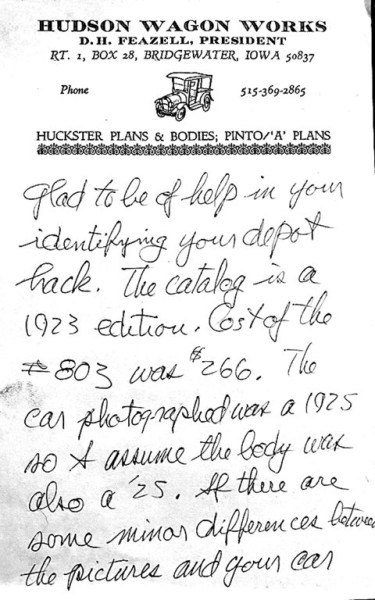 HUDSON WAGON WORKS
D. H. FEAZELL, PRESIDENT
RT. 1, BOX 28, BRIDGEWATER, IOWA 50837
Phone 515-369-2865
HUCKSTER PLANS & BODIES; PINTO/'A' PLANS
Glad to be of help in your
identifying your depot
hack. The catalog is a
1923 edition. Cost of the
#803 was $266. The
car photographed was a 1925
so I assume the body was
also a '25. If there are
some minor differences between
the pictures and your car